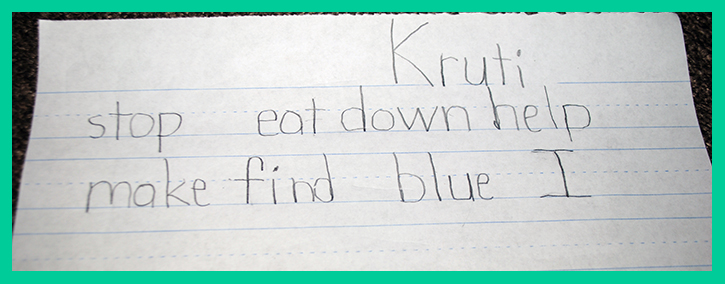 Kruti
stop eat down help
make find blue I